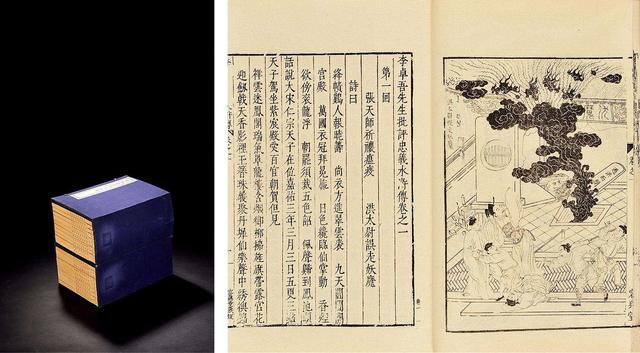 李卓吾先生批評忠義水滸傳卷之一
第一回
張天師祈禳瘟疫　洪太尉誤走妖魔
詩曰
絳幘鷄人報曉籌　尚衣方進翠雲裘　九天閶闔開
宮殿　萬國衣冠拜冕旒　日色纔臨仙掌動　香煙
欲傍袞龍浮　朝罷須裁五色詔　佩聲歸到鳳池頭
話說大宋仁宗天子在位嘉祐三年三月三日五更三點
天子駕坐紫宸殿受百官朝賀但見
祥雲迷鳳閣瑞氣罩龍樓含煙御柳拂旌旗帶露宮花
迎劒戟天香影裡玉簪珠履聚丹墀仙樂聲中綉襖錦